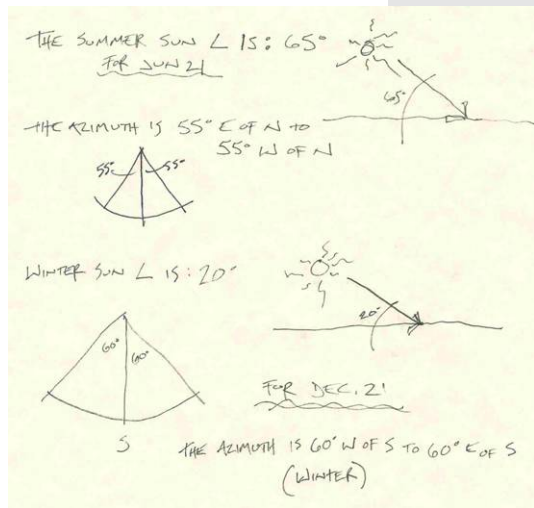 THE SUMMER SUN ∠ IS: 65°
FOR JUN 21
65°
THE AZIMUTH IS 55° E OF N TO
55° W OF N
55° 55°
WINTER SUN ∠ IS: 20°
20°
60° 60°
FOR DEC. 21
S
THE AZIMUTH IS 60° W OF S TO 60° E OF S
(WINTER)